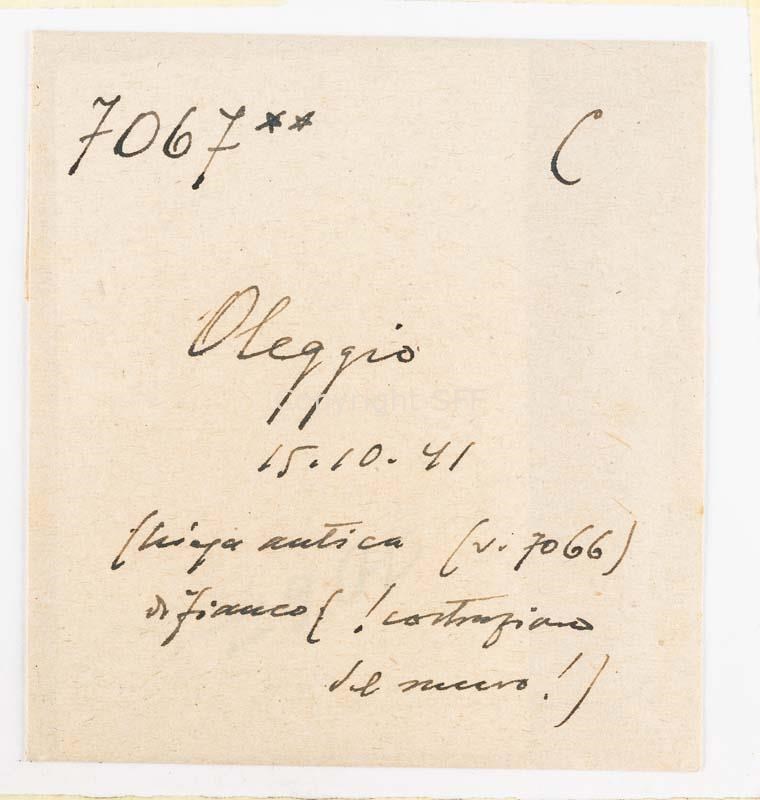 7067** C
Oleggio
Copyright SFF
15.10.41
Chiesa antica (v. 7066)
di fianco ( ! costruzione
del muro! )